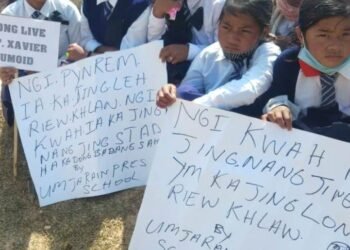 ONG LIVE
P. XAVIER
UMOID
NGI, PYNREM
IA KA JINGLEH
RIEW KHLAW. NGI
KWAH IA KA JING
NANG JING STAD
HA KA
BY
UMJARAIN PRES
SCHOOL
NGI KWAH
JINGNANG JING
YM KA JINGLON
RIEW KHLAW
BY
UMJARAI
SC